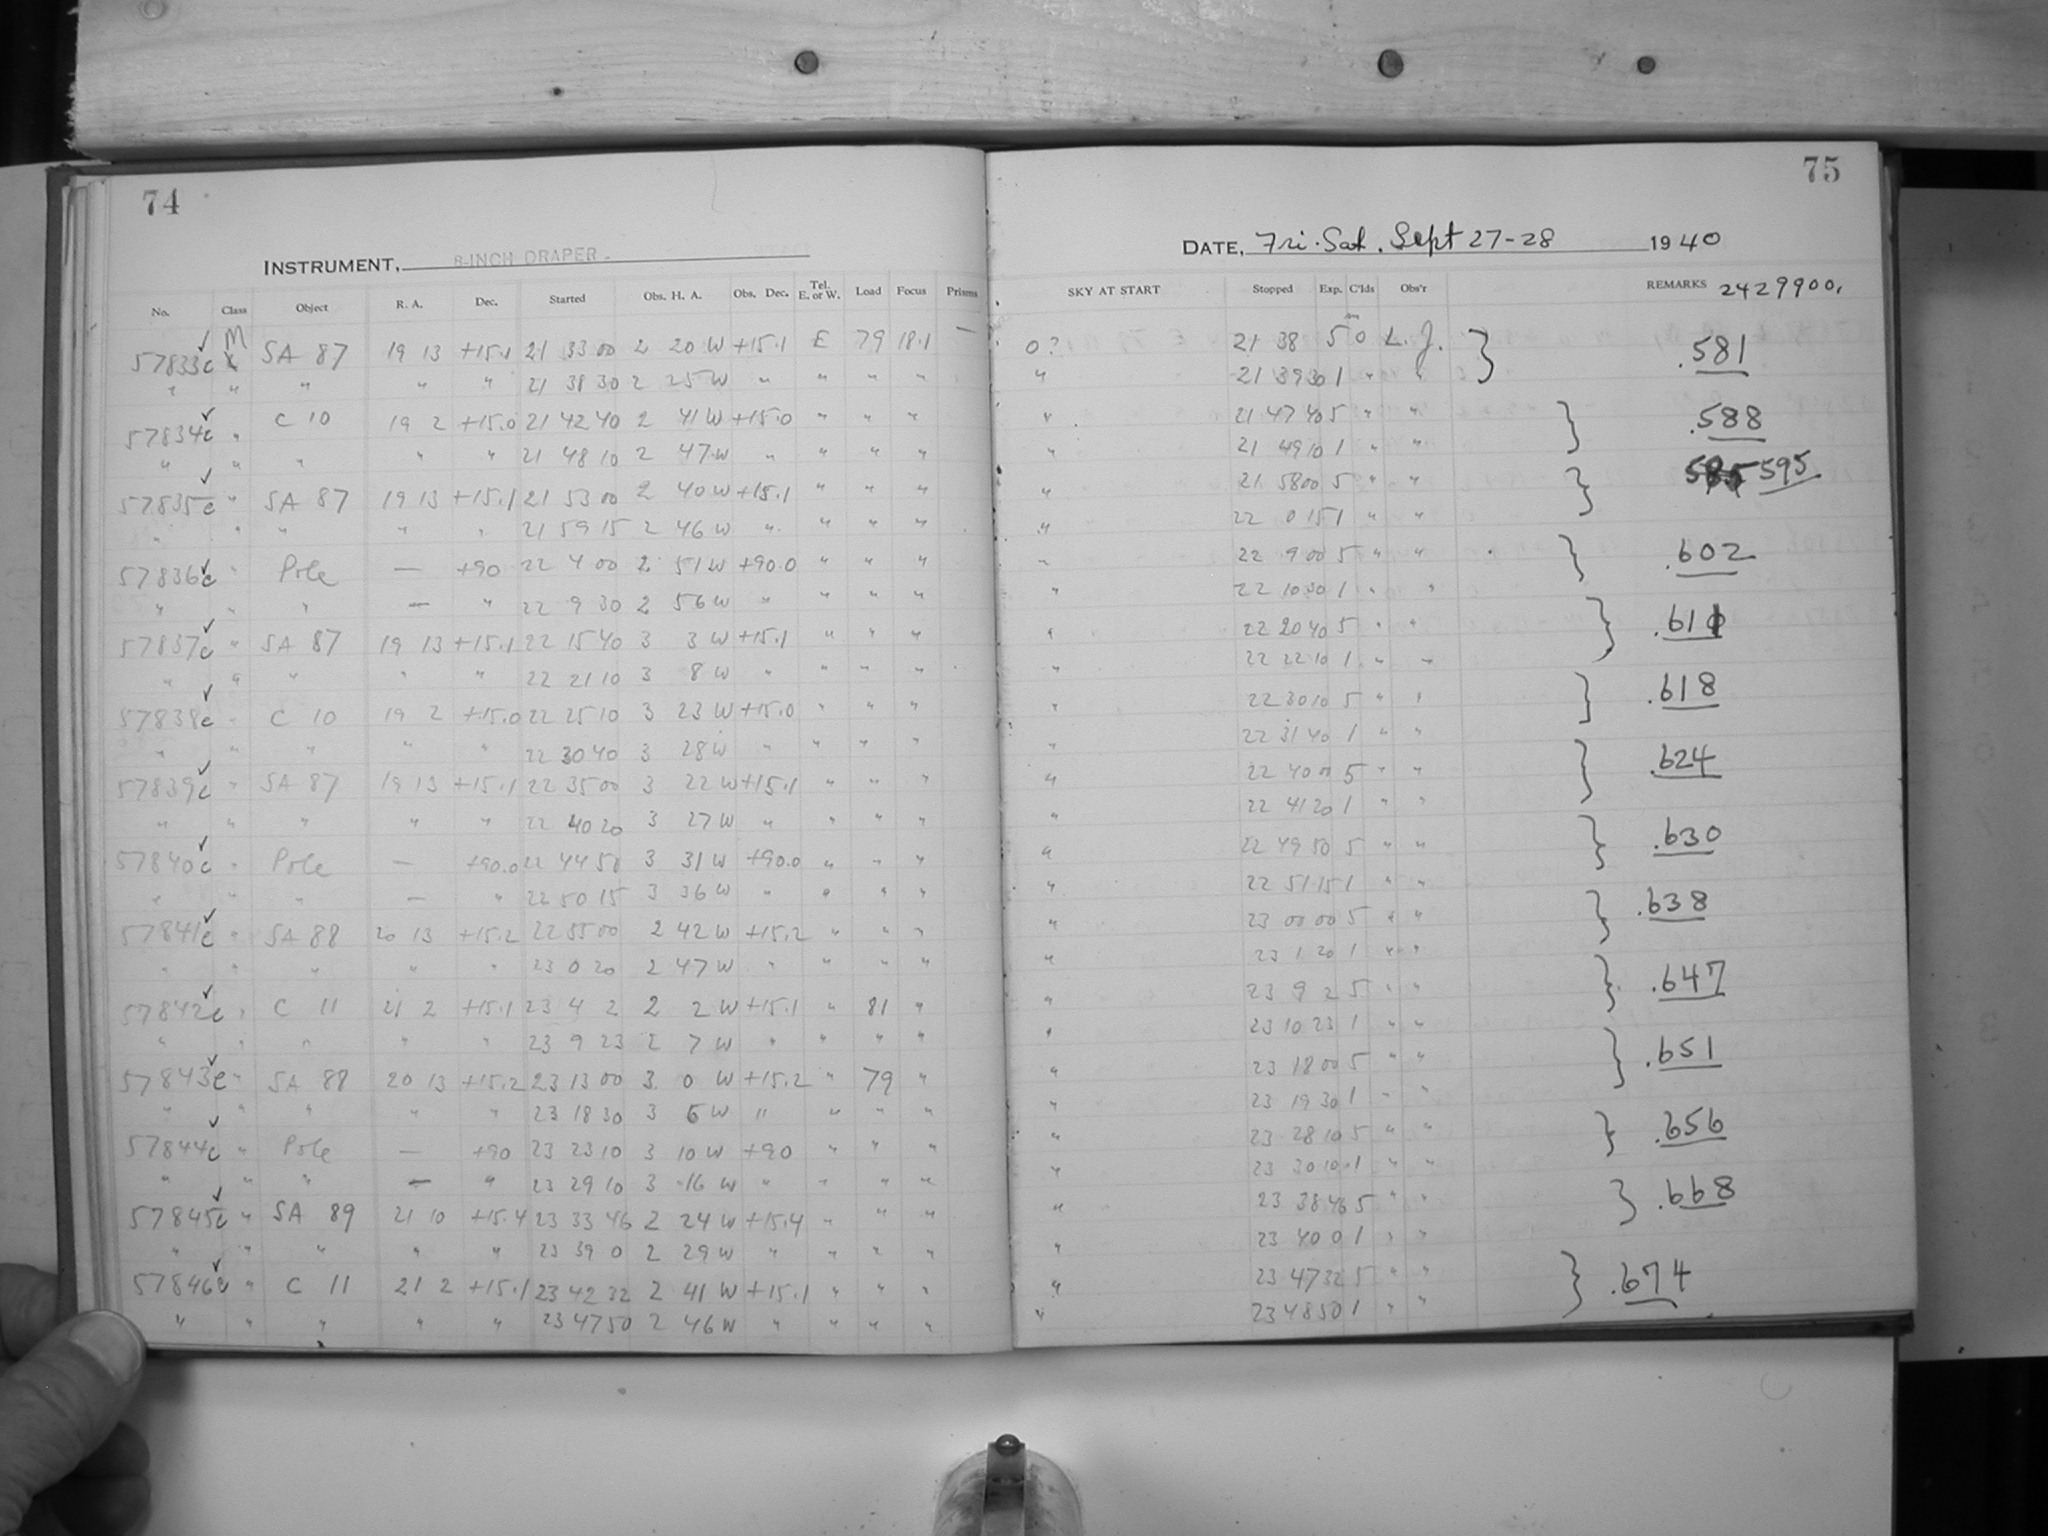 74
INSTRUMENT, 8-INCH DRAPER.
No. Class Object R. A. Dec. Started Obs. H. A. Obs. Dec. Tel. E. or W. Load Focus Prisms
57833c M SA 87 19 13 +15.1 21 33 00 2 20 W +15.1 E 79 18.1 —
" " " " " 21 38 30 2 25 W " " " "
57834c " C 10 19 2 +15.0 21 42 40 2 41 W +15.0 " " "
" " " " " 21 48 10 2 47 W " " " "
57835c " SA 87 19 13 +15.1 21 53 00 2 40 W +15.1 " " "
" " " " " 21 59 15 2 46 W " " " "
57836c " Pole — +90 22 4 00 2 51 W +90.0 " " "
" " " — " 22 9 30 2 56 W " " " "
57837c " SA 87 19 13 +15.1 22 15 40 3 3 W +15.1 " " "
" " " " " 22 21 10 3 8 W " " " "
57838c " C 10 19 2 +15.0 22 25 10 3 23 W +15.0 " " "
" " " " " 22 30 40 3 28 W " " " "
57839c " SA 87 19 13 +15.1 22 35 00 3 22 W +15.1 " " "
" " " " " 22 40 20 3 27 W " " " "
57840c " Pole — +90.0 22 44 50 3 31 W +90.0 " " "
" " " — " 22 50 15 3 36 W " " " "
57841c " SA 88 20 13 +15.2 22 55 00 2 42 W +15.2 " " "
" " " " " 23 0 20 2 47 W " " " "
57842c " C 11 21 2 +15.1 23 4 2 2 2 W +15.1 " 81 "
" " " " " 23 9 23 2 7 W " " " "
57843c " SA 88 20 13 +15.2 23 13 00 3 0 W +15.2 " 79 "
" " " " " 23 18 30 3 6 W " " " "
57844c " Pole — +90 23 23 10 3 10 W +90 " " "
" " " — " 23 29 10 3 16 W " " " "
57845c " SA 89 21 10 +15.4 23 33 46 2 24 W +15.4 " " "
" " " " " 23 39 0 2 29 W " " " "
57846c " C 11 21 2 +15.1 23 42 32 2 41 W +15.1 " " "
" " " " " 23 47 50 2 46 W " " " "
75
DATE, Fri. Sat. Sept 27-28 1940
SKY AT START Stopped Exp. C'lds Obs'r REMARKS 2429900.
0? 21 38 5 0 L. J. .581
" 21 39 30 1 " "
" 21 47 40 5 " " .588
" 21 49 10 1 " "
" 21 58 00 5 " " 595
" 22 0 15 1 " "
" 22 9 00 5 " " .602
" 22 10 30 1 " "
" 22 20 40 5 " " .611
" 22 22 10 1 " "
" 22 30 10 5 " " .618
" 22 31 40 1 " "
" 22 40 00 5 " " .624
" 22 41 20 1 " "
" 22 49 50 5 " " .630
" 22 51 15 1 " "
" 23 00 00 5 " " .638
" 23 1 20 1 " "
" 23 9 2 5 " " .647
" 23 10 23 1 " "
" 23 18 00 5 " " .651
" 23 19 30 1 " "
" 23 28 10 5 " " .656
" 23 30 10 1 " "
" 23 38 46 5 " " .668
" 23 40 0 1 " "
" 23 47 32 5 " " .674
" 23 48 50 1 " "